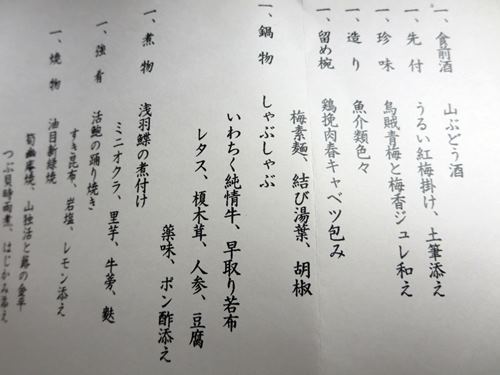 一、食前酒　山ぶどう酒
一、先付　うるい紅梅掛け、土筆添え
一、珍味　烏賊青梅と梅香ジュレ和え
一、造り　魚介類色々
一、留め椀　鶏挽肉春キャベツ包み
梅素麺、結び湯葉、胡椒
一、鍋物　しゃぶしゃぶ
いわちく純情牛、早取り若布
レタス、榎木茸、人参、豆腐
薬味、ポン酢添え
一、煮物　浅羽鰈の煮付け
ミニオクラ、里芋、牛蒡、麩
一、強肴　活鮑の踊り焼き
すき昆布、岩塩、レモン添え
一、焼物　油目新緑焼
筍幽庵焼、山独活と蕗の金平
つぶ貝時雨煮、はじかみ添え